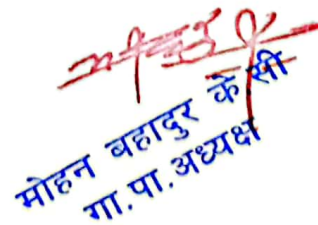 मोहन बहादुर के सी
गा.पा.अध्यक्ष